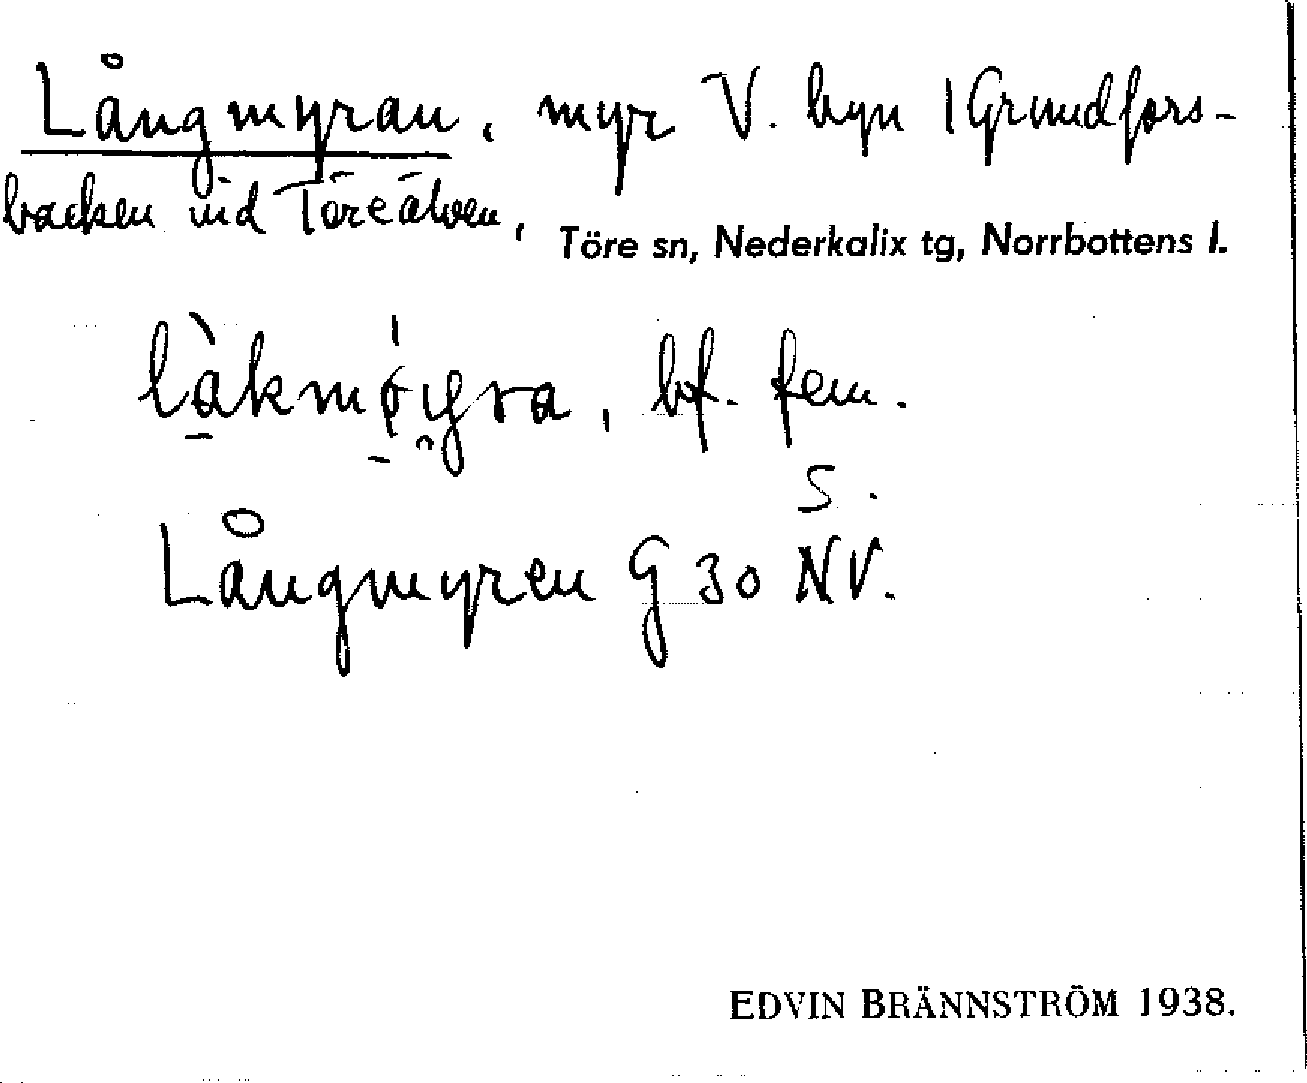 Långmyran, myr V. byn i Grundfors-
backen vid Töreälven,
Töre sn, Nederkalix tg, Norrbottens l.
bf. fem.
S.
Långmyren G 30 NV.
EDVIN BRÄNNSTRÖM 1938.